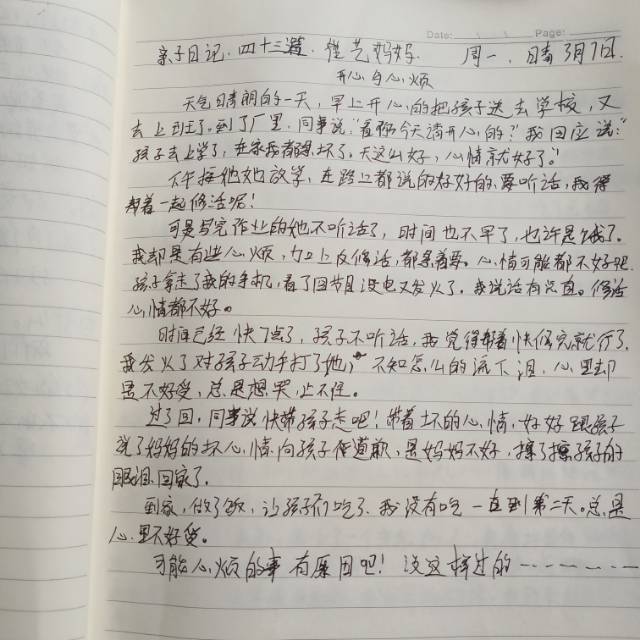 Date: Page:
亲子日记.四十三篇. 佳艺妈妈. 周一.晴3月7日.
开心与心烦
天气晴朗的一天,早上开心的把孩子送去学校,又
去上班了.到了厂里.同事说"看你今天满开心的?"我回应说:"
孩子去上学了,在家我都吵坏了.天这么好,心情就好了。"
下午接他她放学,在路上都说的好好的.要听话,我得
帮着一起修活呢!
可是写完作业的她不听话了,时间也不早了,也许是饿了.
我却是有些心烦,加上反修活,都急着要.心情可能都不好吧.
孩子拿走了我的手机,看了回节目没电又发火了.我说话有点直。修活
心情都不好。
时间已经快7点了,孩子不听话,我觉得帮着快修完就行了.
我发火了对孩子动手打了她,不知怎么的流下泪,心里却
是不好受,总是想哭,止不住。
过了回,同事说快带孩子走吧!带着坏的心情,好好跟孩子
说了妈妈的坏心情.向孩子便道歉,是妈妈不好,擦了擦孩子的
眼泪.回家了.
到家,做了饭,让孩子们吃了.我没有吃一直到第二天。总是
心里不好受。
可能心烦的事有原因吧!没这样过的------